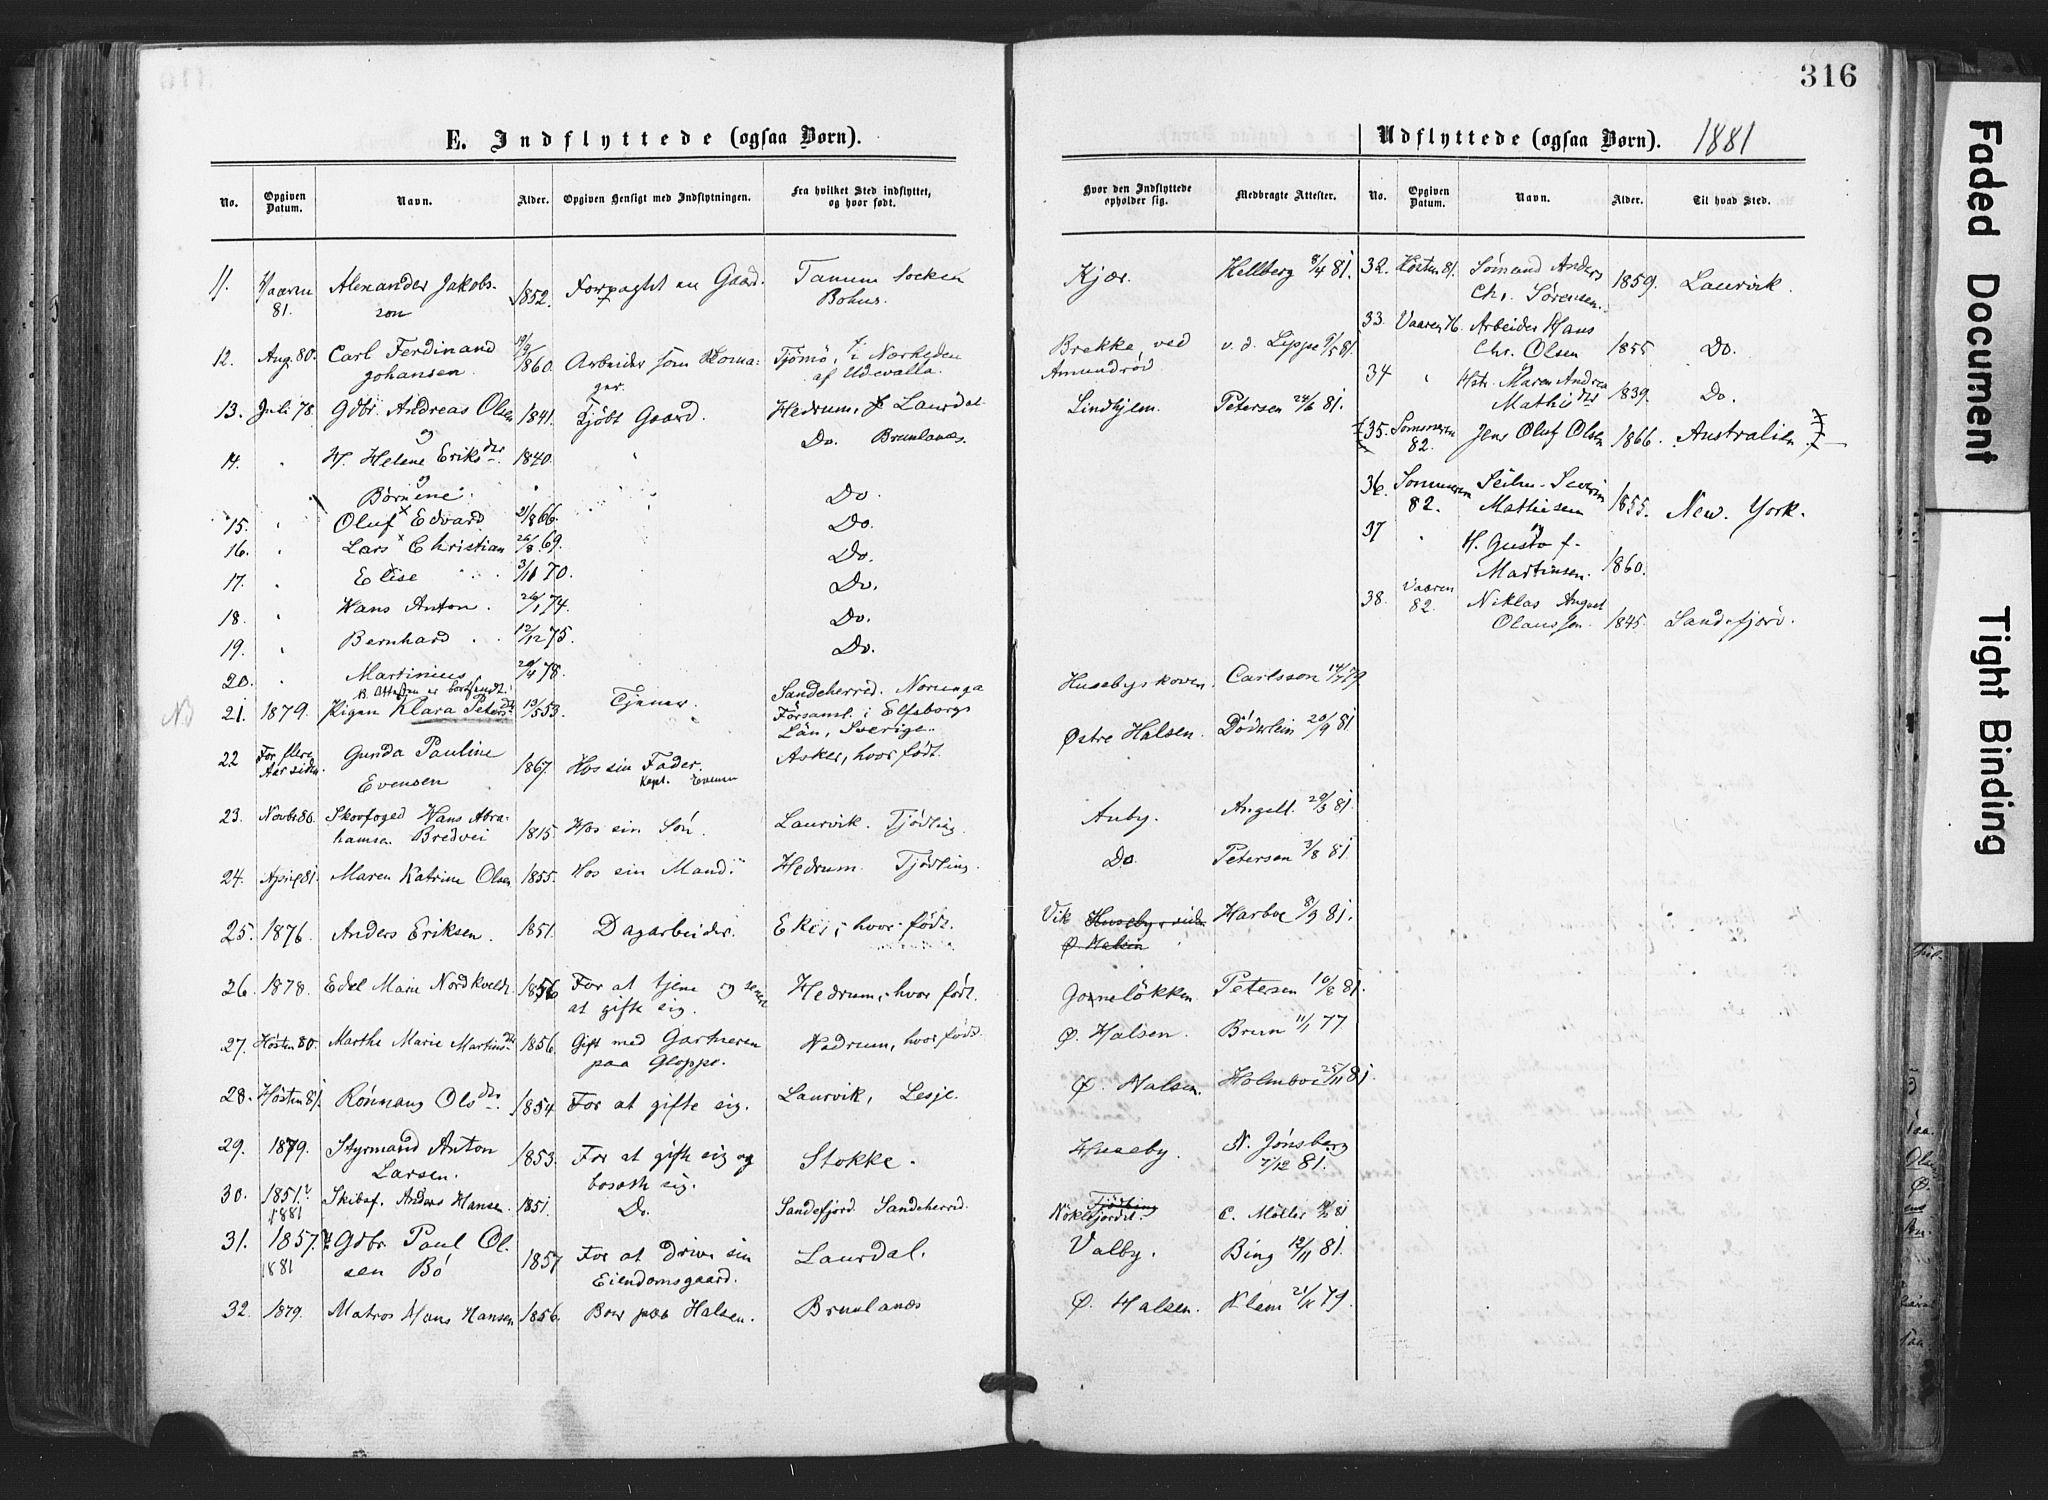 316
E. Indflyttede (ogsaa Børn).
Udflyttede (ogsaa Børn). 1881
No. Opgiven Datum. Navn. Alder. Opgiven Hensigt med Indflytningen. Fra hvilket Sted indflyttet, og hvor født.
Hvor den Indflyttede opholder sig. Medbragte Attester. No. Opgiven Datum. Navn. Alder. Til hvad Sted.
11. Vaaren 81. Alexander Jakobsson 1852. Forpagte en Gaard. Tanum Socken Bohus. Kjær. Hellberg 8/4 81.
12. Aug. 80. Carl Ferdinand Johansen 1860. Arbeider som Tjømø, i Nærheden af Udevalla. Brekke ved Amundrød v. d. Lippe 9/5 81.
13. Juli 78. Gdbr. Andreas Olsen 1841. Kjøbt Gaard. Hedrum. Laurdal. Lindhjem. Petersen 24/6 81.
og Do. Brunlanæs.
14. " H. Helene Eriksdtr 1840. "
og Børnene. Do.
15. " Oluf Edvard 21/8 66. Do.
16. " Lars Christian 26/8 69. Do.
17. " Elise 3/11 70. Do.
18. " Hans Anton. 26/1 74. Do.
19. " Bernhard 12/12 75. Do.
20. " Martinius 20/4 78.
B. Attesten er bortsendt.
21. 1879. Pigen Klara Petersdtr 19/5 53. Tjener. Sandeherred. Norunga Församl. i Elfsborgs Län, Sverige. Husebyskoven. Carlsson 14/7 79
22 For flere Aar siden. Gunda Pauline Evensen 1867. Hos sin Fader. Kapt. Evensen Asker, hvor født. Østre Halsen. Döderlein 20/9 81
23. Novbr 80. Skovfoged Hans Abrahamsen Bredvei 1815. Hos sin Søn. Laurvik. Tjødling. Auby. Angell 20/3 81
24. April 81. Maren Katrine Olsen 1855. Hos sin Mand. Hedrum. Tjødling. Do. Petersen 3/8 81.
25. 1876. Anders Eriksen. 1851. Dagarbeider. Eker, hvor født. Vik Ø. Halsen Harboe 8/9 81.
26. 1878. Edel Marie Nordkveldt 1856 For at tjene og senere at gifte sig. Hedrum, hvor født. Gonelökken. Petersen 10/8 81.
27. Høsten 80. Marthe Marie Martinsdtr 1856. Gift med Gartneren paa Gloppe. Hedrum, hvor født. Ø. Halsen. Brun 11/1 77
28. Høsten 81. Rønnaug Olsdtr. 1854. For at gifte sig. Laurvik, Lesje. Ø. Halsen. Holmboe 25/11 81.
29. 1879. Styrmand Anton Larsen. 1853. For at gifte sig og bosætte sig. Stokke. Huseby. N. Jønsberg 7/12 81.
30. 1851. 1881 Skibsf. Anders Hansen. 1851. Do. Sandefjord Sandeherred. Tjødling C. Møller 81
31. 1857. 1881 Gdbr. Paul Olsen Bö 1857 For at drive sin Eiendomsgaard. Laurdal. Valby. Bing 12/11 81.
32. 1879. Matros Hans Hansen 1856. Boer paa Halsen. Brunlanæs Ø. Halsen. Klem 21/11 79.
32. Høsten 81. Sømand Anders Chr. Sørensen. 1859. Laurvik.
33. Vaaren 76. Arbeider Hans Chr. Olsen 1855 Do.
34 " og Hstr. Maren Andrea Mathisdtr 1839. Do.
35. Sommeren 82. Jens Oluf Olsen 1866. Australien.
36. Sommeren 82. Severin Mathisen 1855. New York.
37 " og H. Gustaf Martinsen. 1860.
38. Vaaren 82. Niklas August Olaussen. 1845. Sandefjord.
Faded Document
Tight Binding